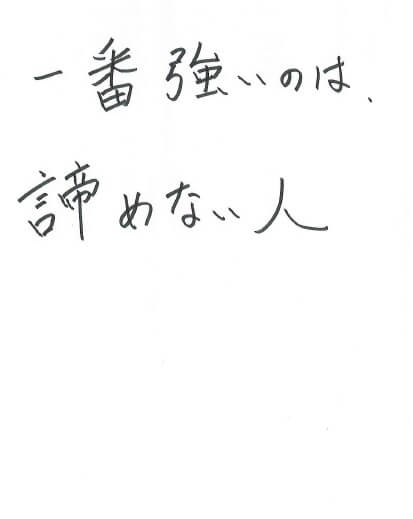 一番強いのは、
諦めない人